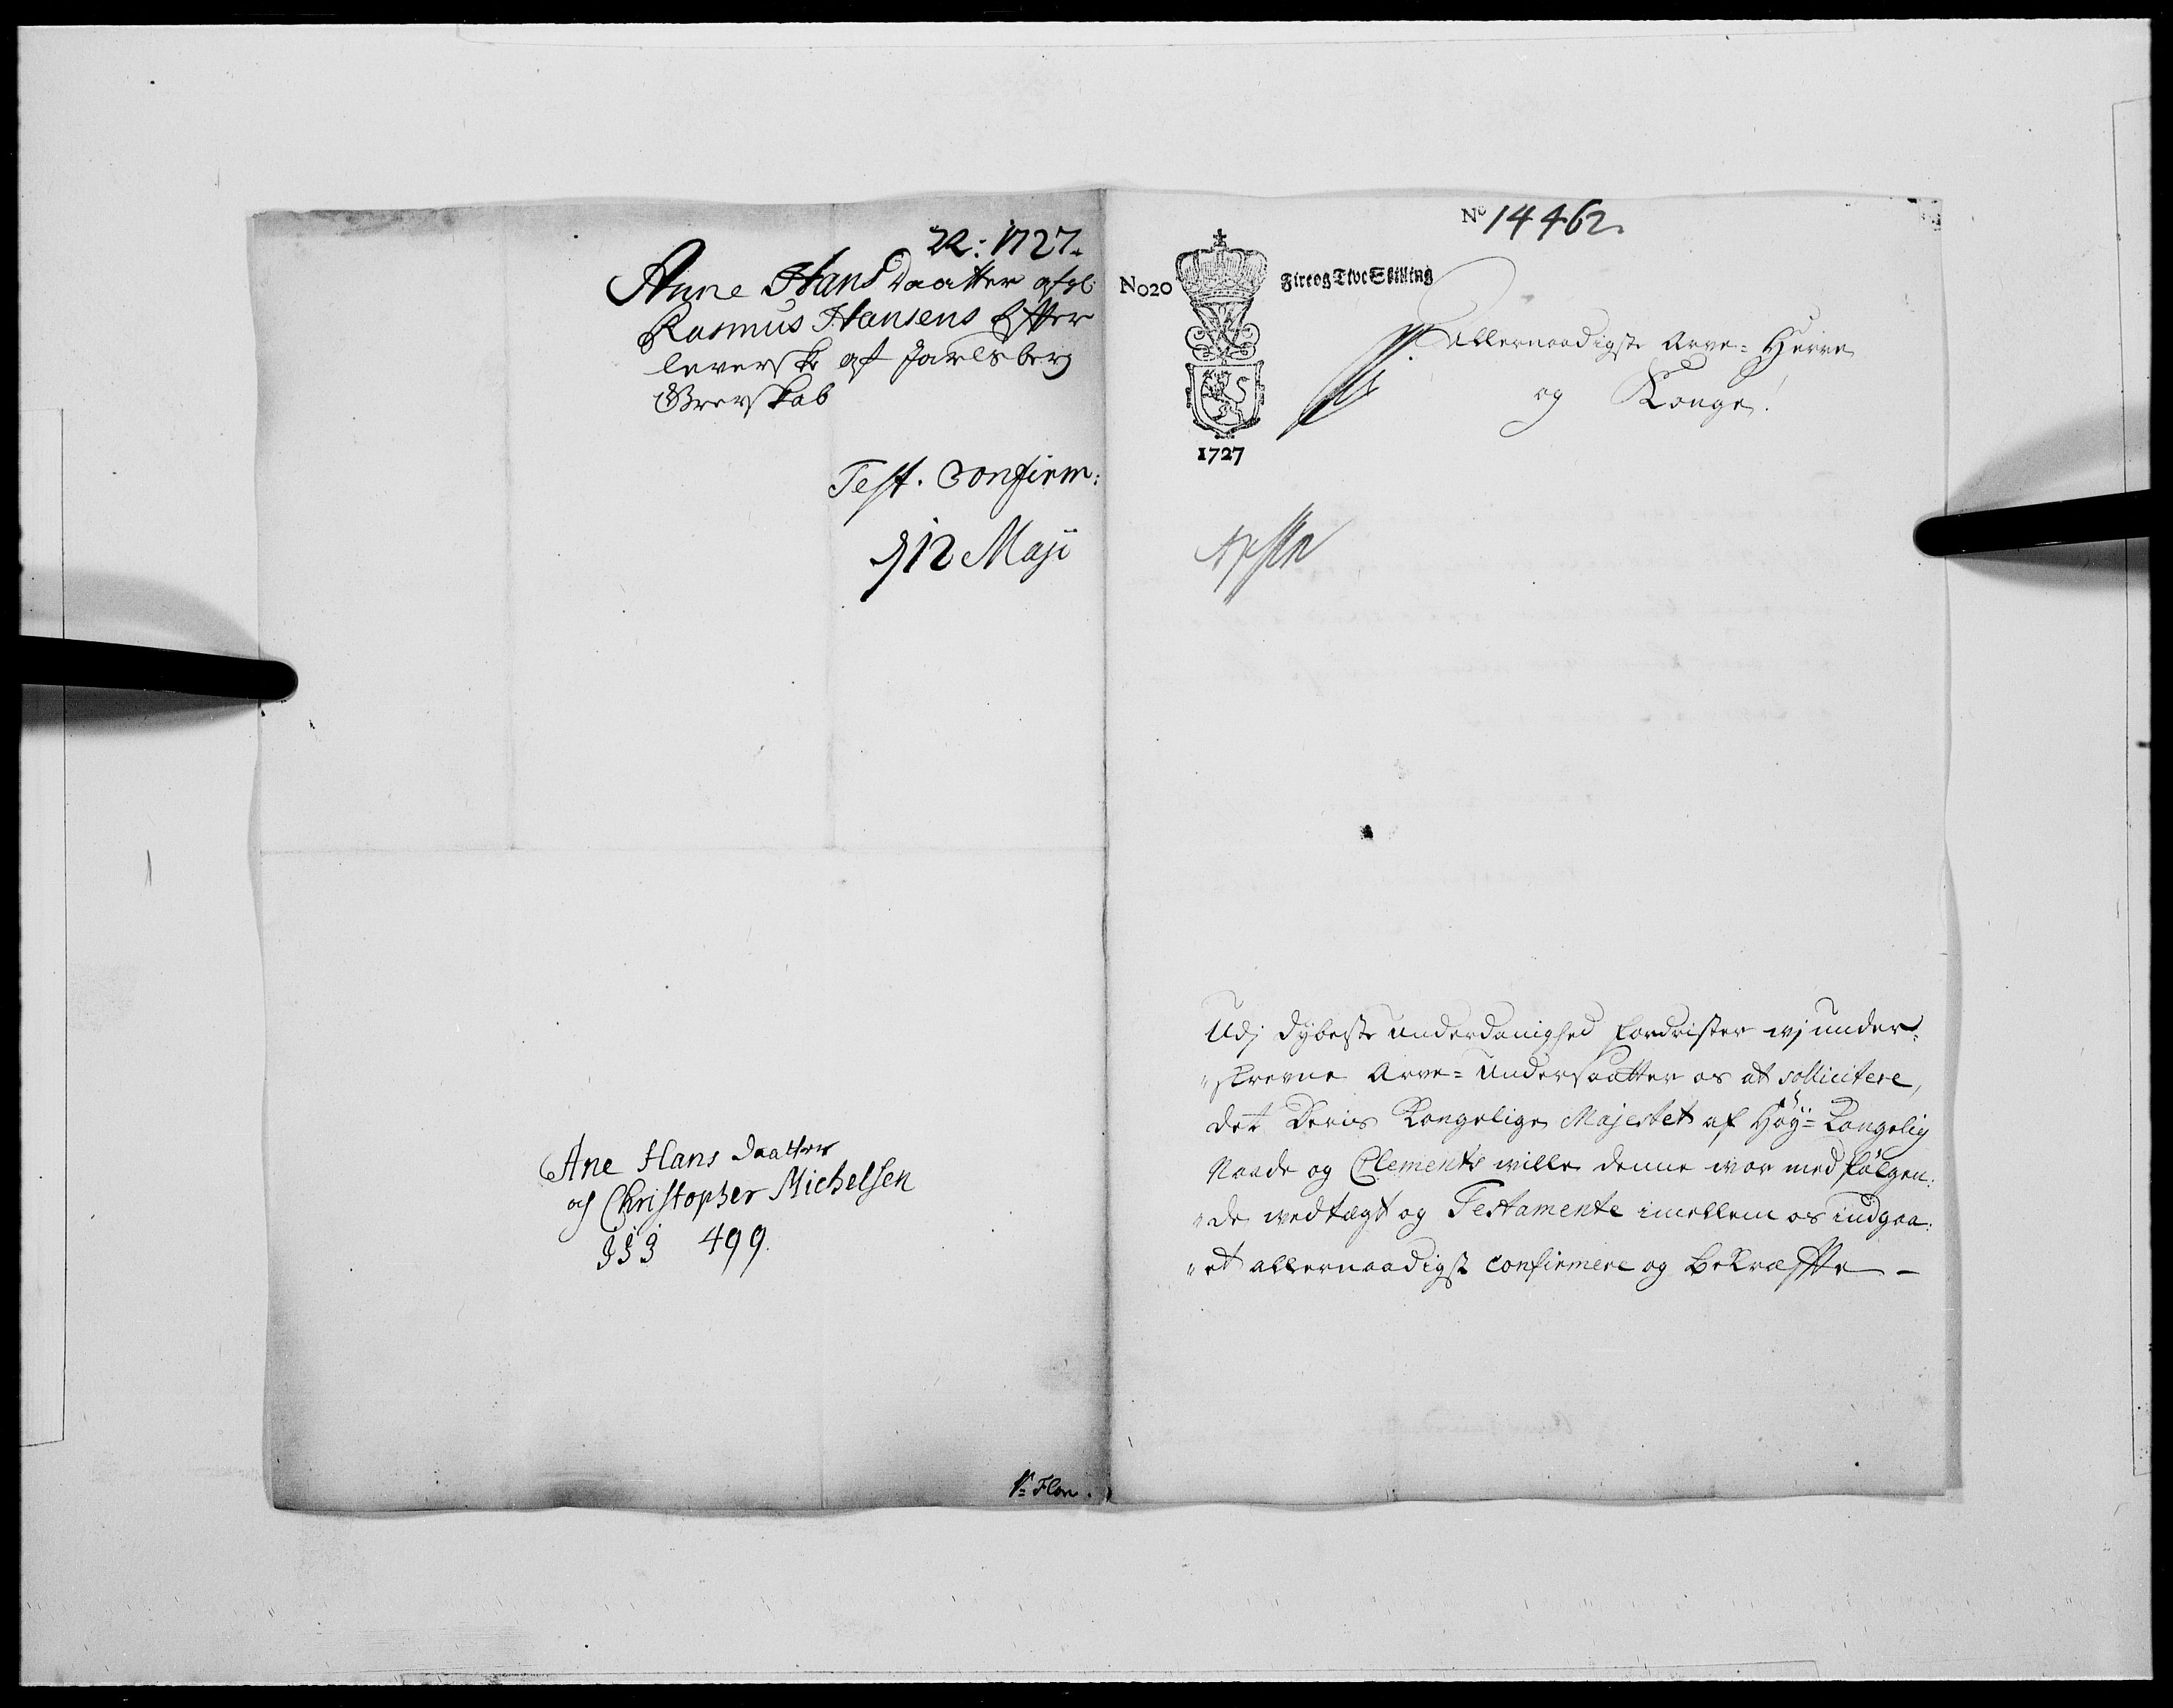 22: 1727.
Anne Hans daatter afgl:
Rasmus Hansens Efter
leverske af Jarlsberg
Grevskab
Test. Confirm:
d 12 Maji
Ane Hans daatter
og Christopher Michelsen
499.
No 14462.
No20
Fire og Tive Skilling
1727
Allernaadigste Arve= Herre
og Konge!
Udj dybeste underdanighed fordrister wj under:
"skrevne Arve= Undersaatter os at sollicitere,
det Deris Kongelige Majestet af Høy= Kongelig
Naade og Clements wille denne wor med følgen:
"de wedtægt og Testamente imellem os indgaa:
"et allernaadigst confirmere og bekræffte –